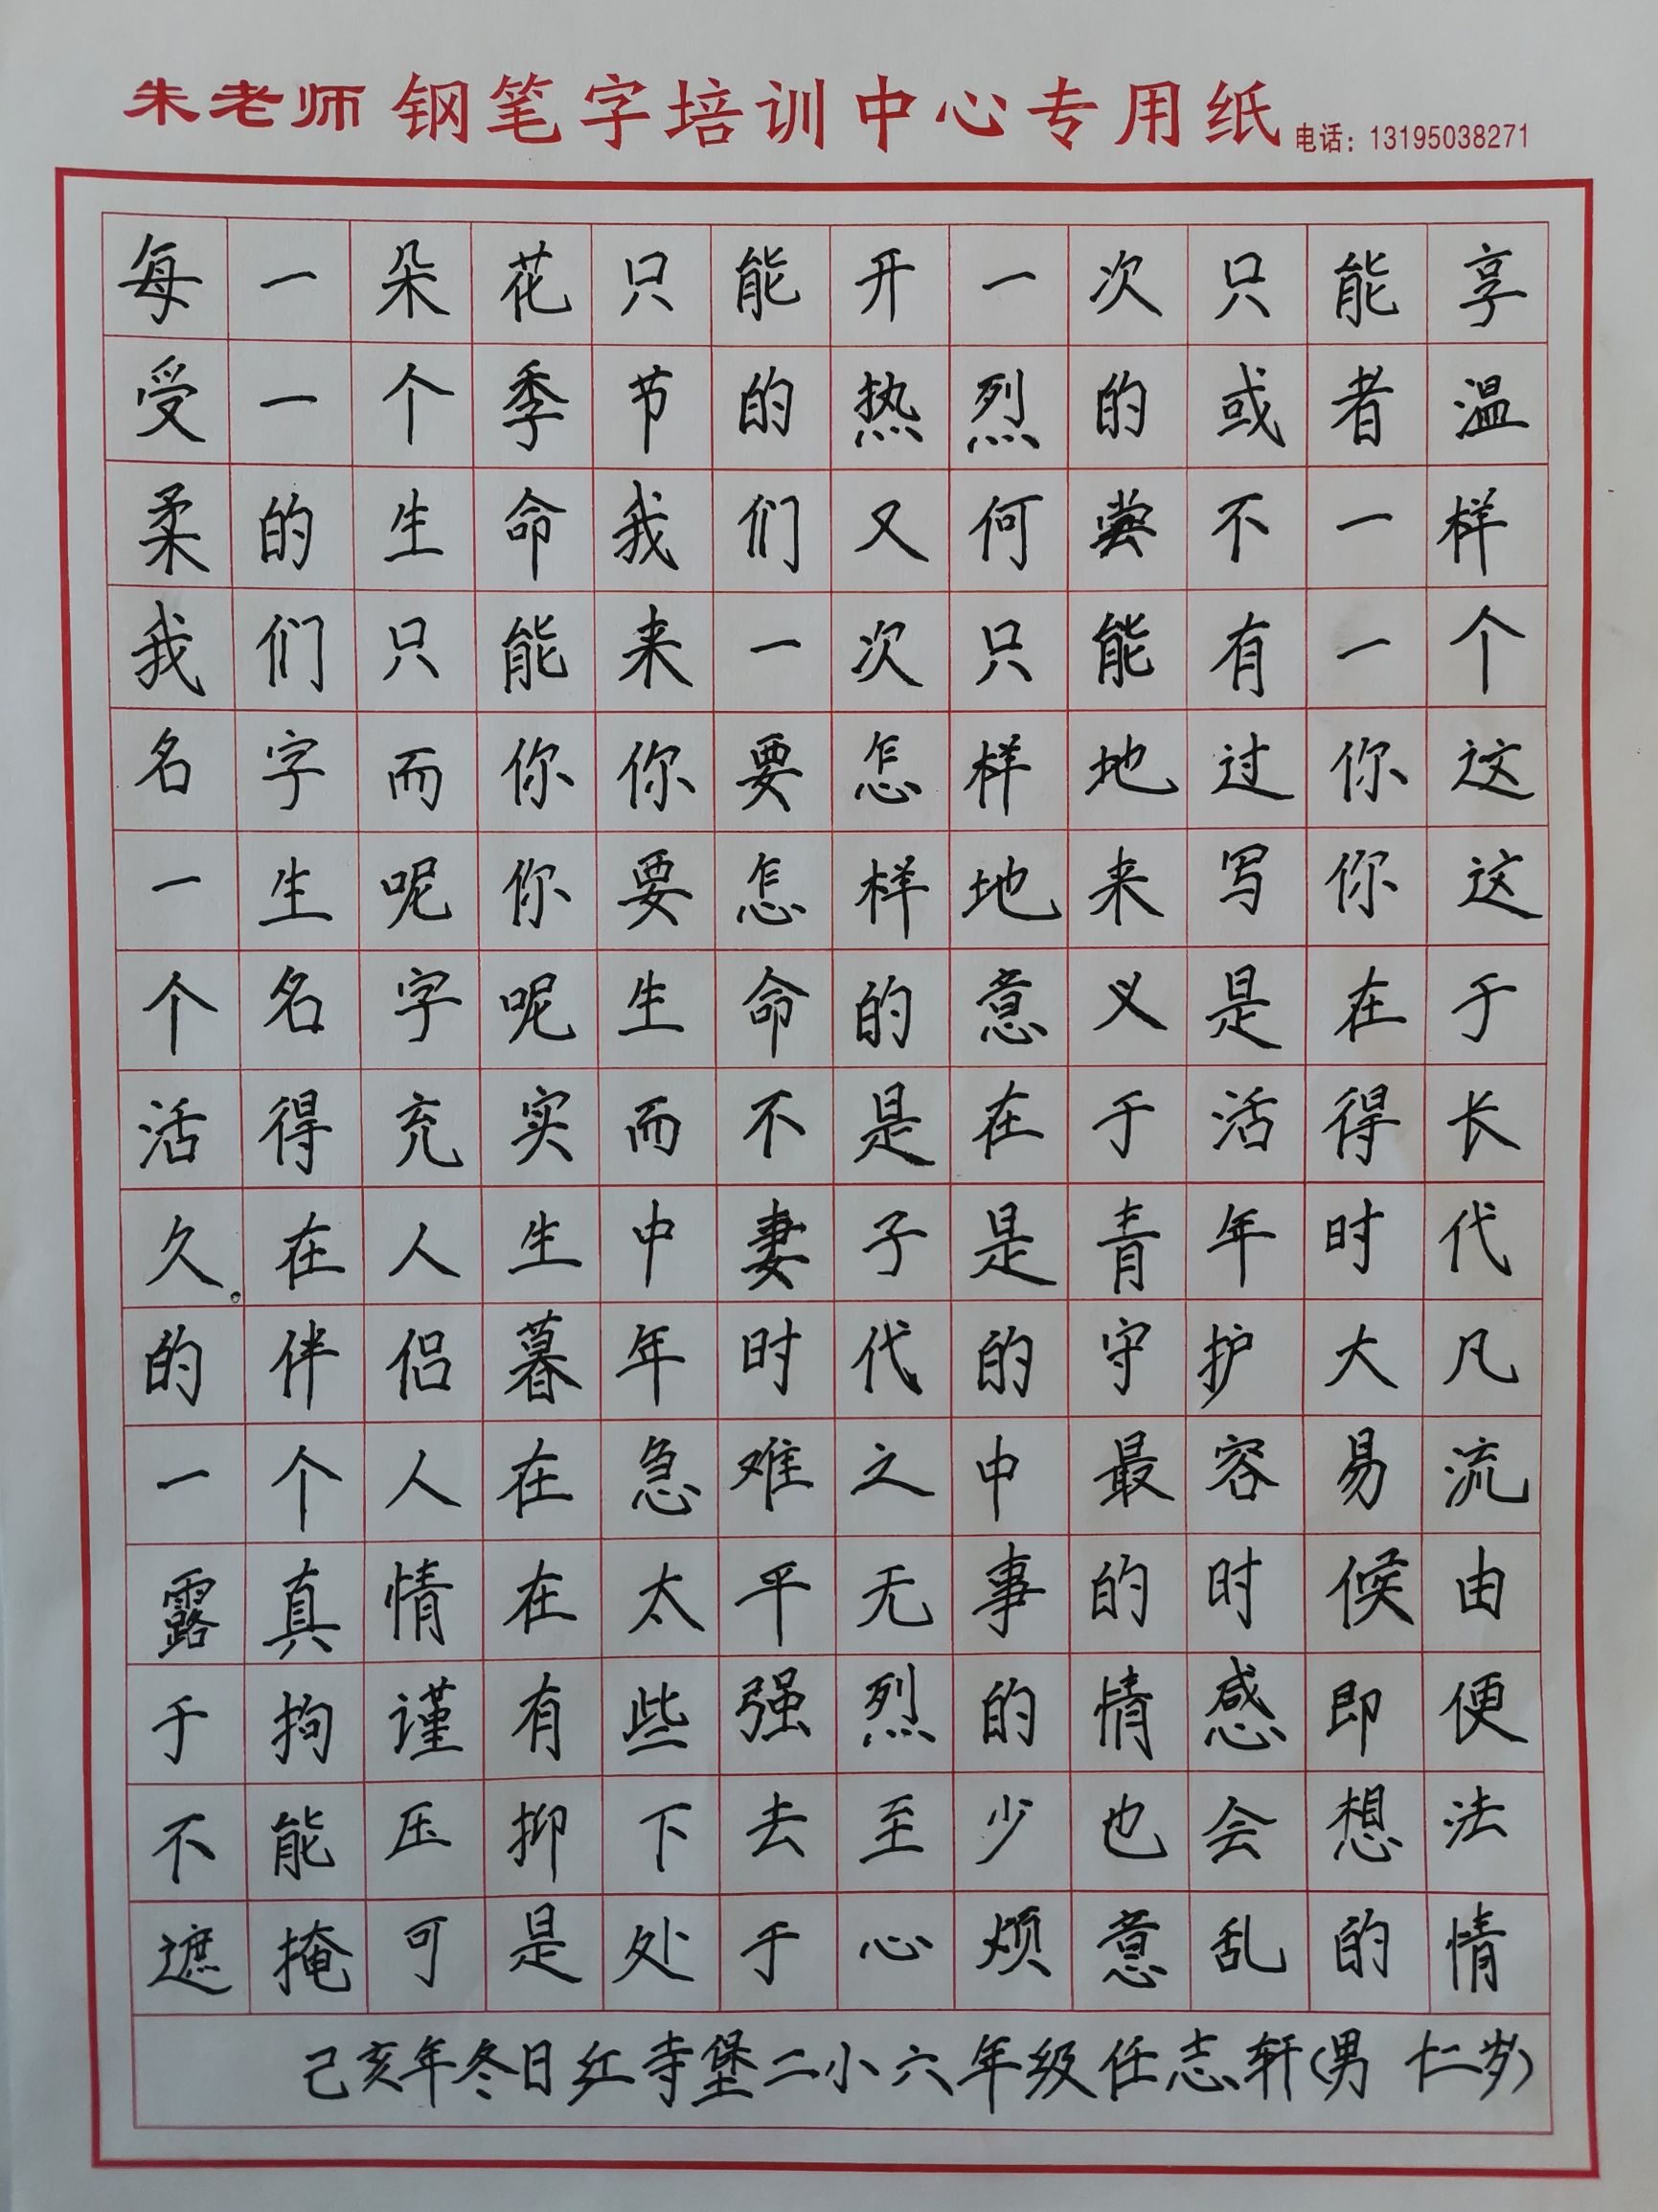 朱老师 钢笔字培训中心专用纸 电话：13195038271
每一朵花只能开一次只能享
受一个季节的热烈的或者温
柔的生命我们又何尝不一样
我们只能来一次只能有一个
名字而你你要怎样地过你这
一生呢你要怎样地来写你这
个名字呢生命的意义是在于
活得充实而不是在于活得长
久。在人生中妻子是青年时代
的伴侣暮年时代的守护大凡
一个人在急难之中最容易流
露真情在太平无事的时候由
于拘谨有些强烈的情感即便
不能压抑下去至少也会想法
遮掩可是处于心烦意乱的情
己亥年冬日红寺堡二小六年级任志轩（男 十二岁）